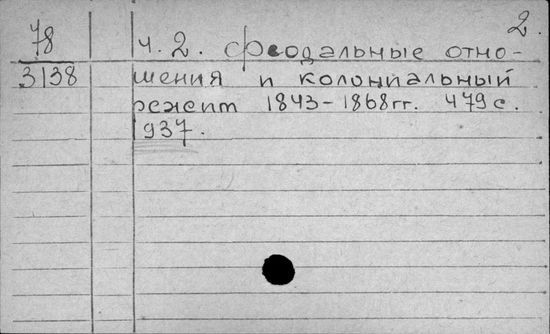 2.
78
3138
ч. 2. феодальные отно-
шения и колониальный
режим 1843-1868гг. 479с.
1937.